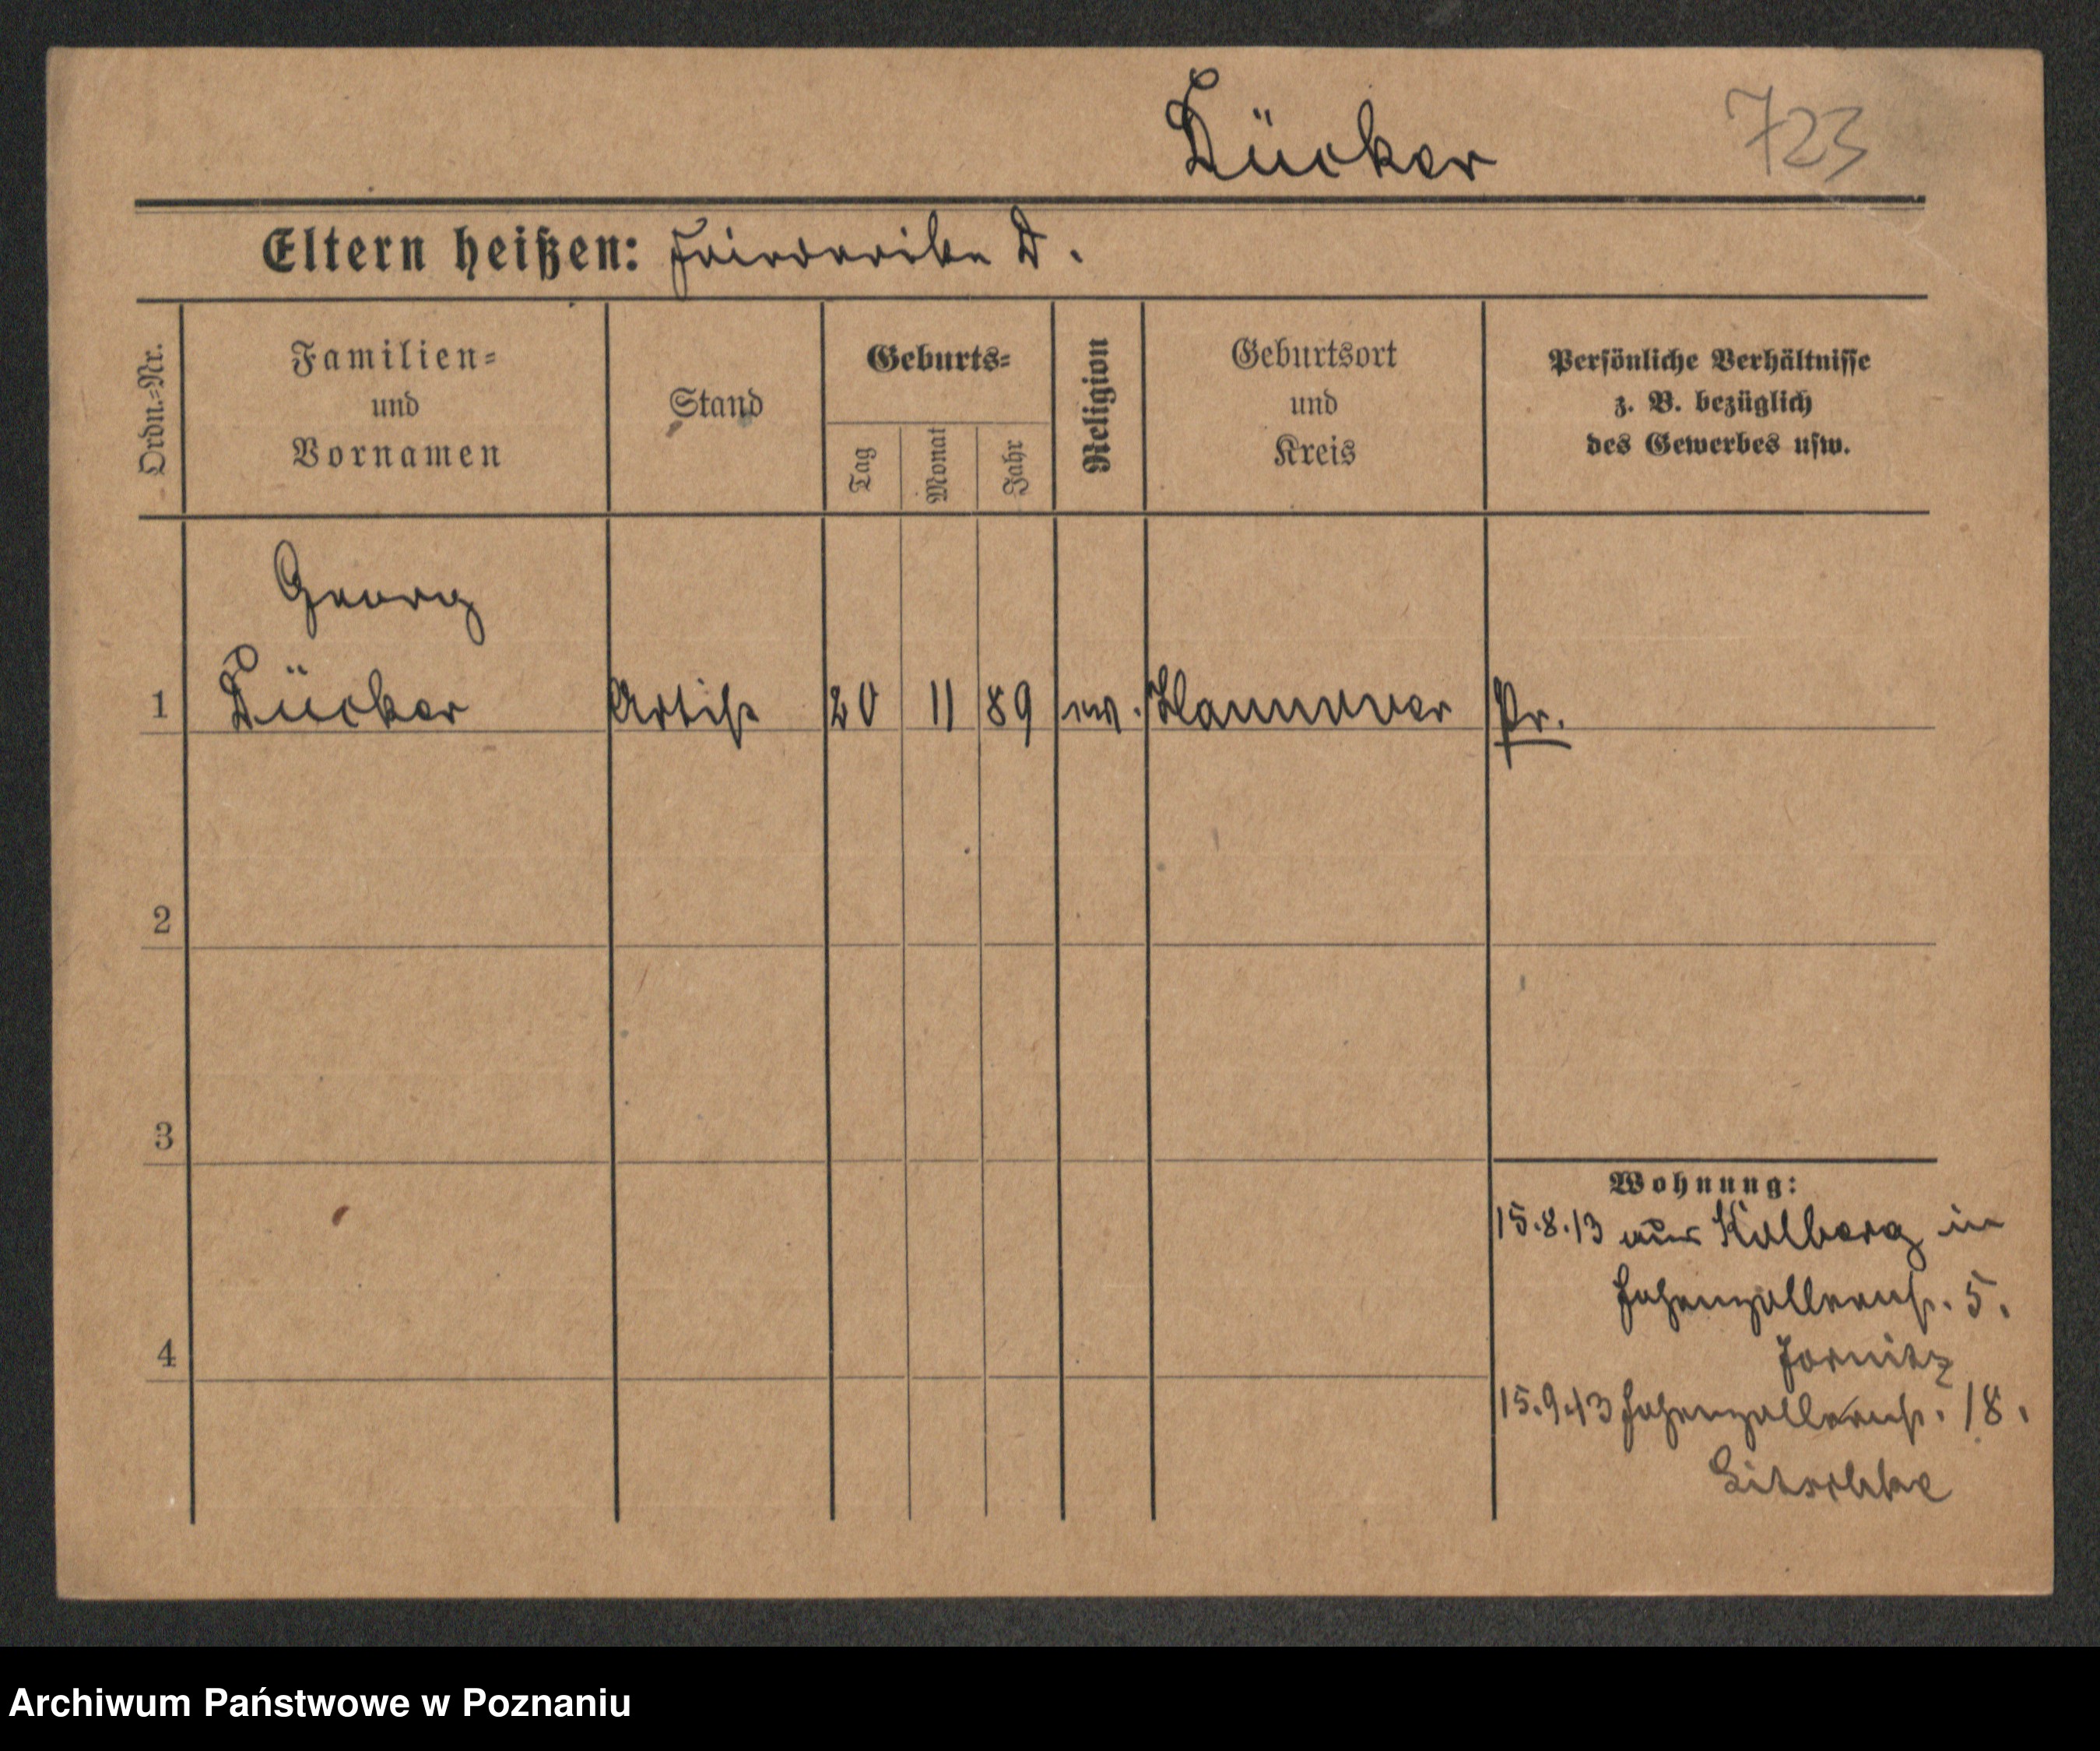 Dücker 723
Eltern heißen: Friederike D.
Ordn.=Nr.
Familien=
und
Vornamen
Stand
Geburts=
Tag
Monat
Jahr
Religion
Geburtsort
und
Kreis
Persönliche Verhältnisse
z. B. bezüglich
des Gewerbes usw.
Georg
1 Dücker Artist 20 11 89 ev. Hannover Pr.
2
3
Wohnung:
15.8.13 aus Kolberg in
Hohenzollernstr. 5.
4
15.9.13 Hohenzollernstr. 18.
Archiwum Państwowe w Poznaniu